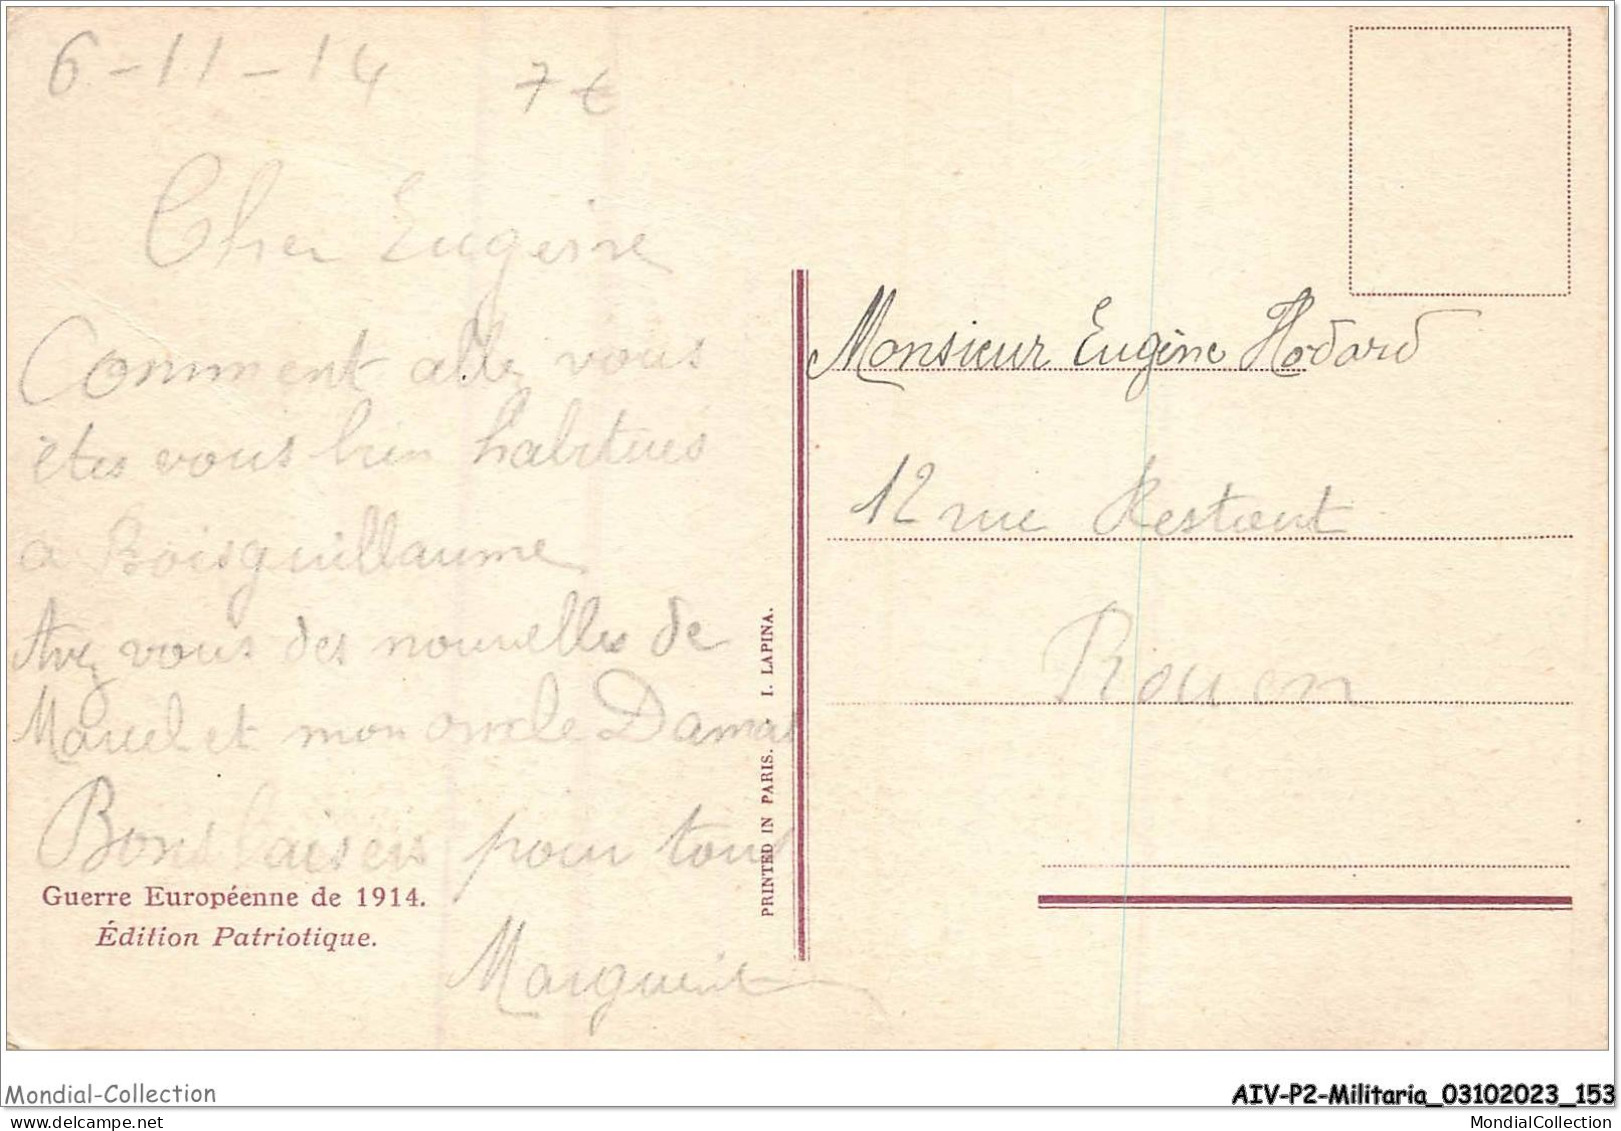 6-11-14
7€
Cher Eugeine
Comment alle vous
êtes vous bien habitues
a Boisguillaume
Avez vous des nouvelles de
Marcel et mon oncle Damas
Bons baisers pour tous
Marguerite
Guerre Européenne de 1914.
Édition Patriotique.
PRINTED IN PARIS. I. LAPINA.
Monsieur Eugène Hodard
12 rue Restout
Rouen
Mondial-Collection
AIV-P2-Militaria_03102023_153
www.delcampe.net
MondialCollection